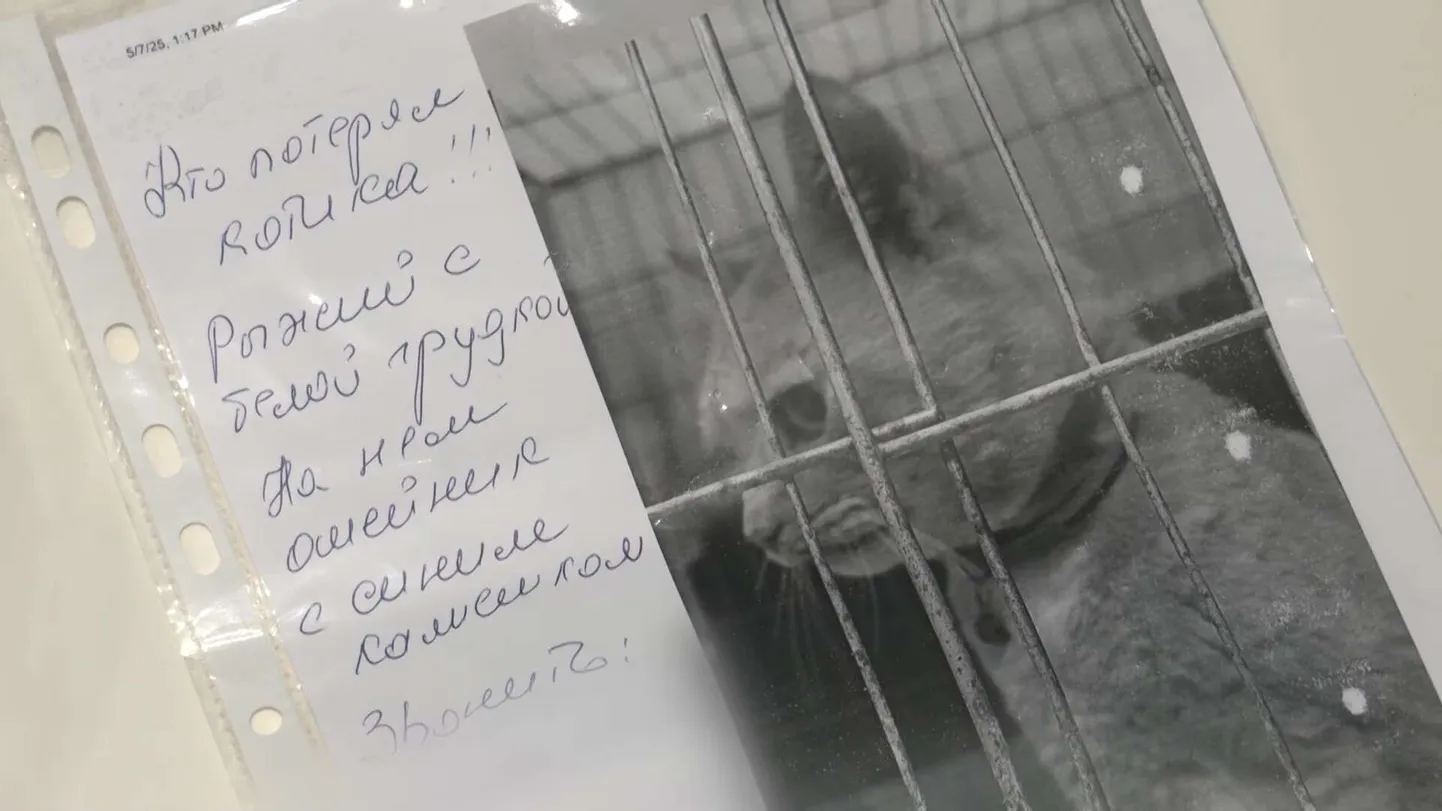 5/7/25, 1:17 PM
Кто потерял
котика!!!
Рыжий с
белой грудкой
На нем
ошейник
с синим
камешком
Звонить: